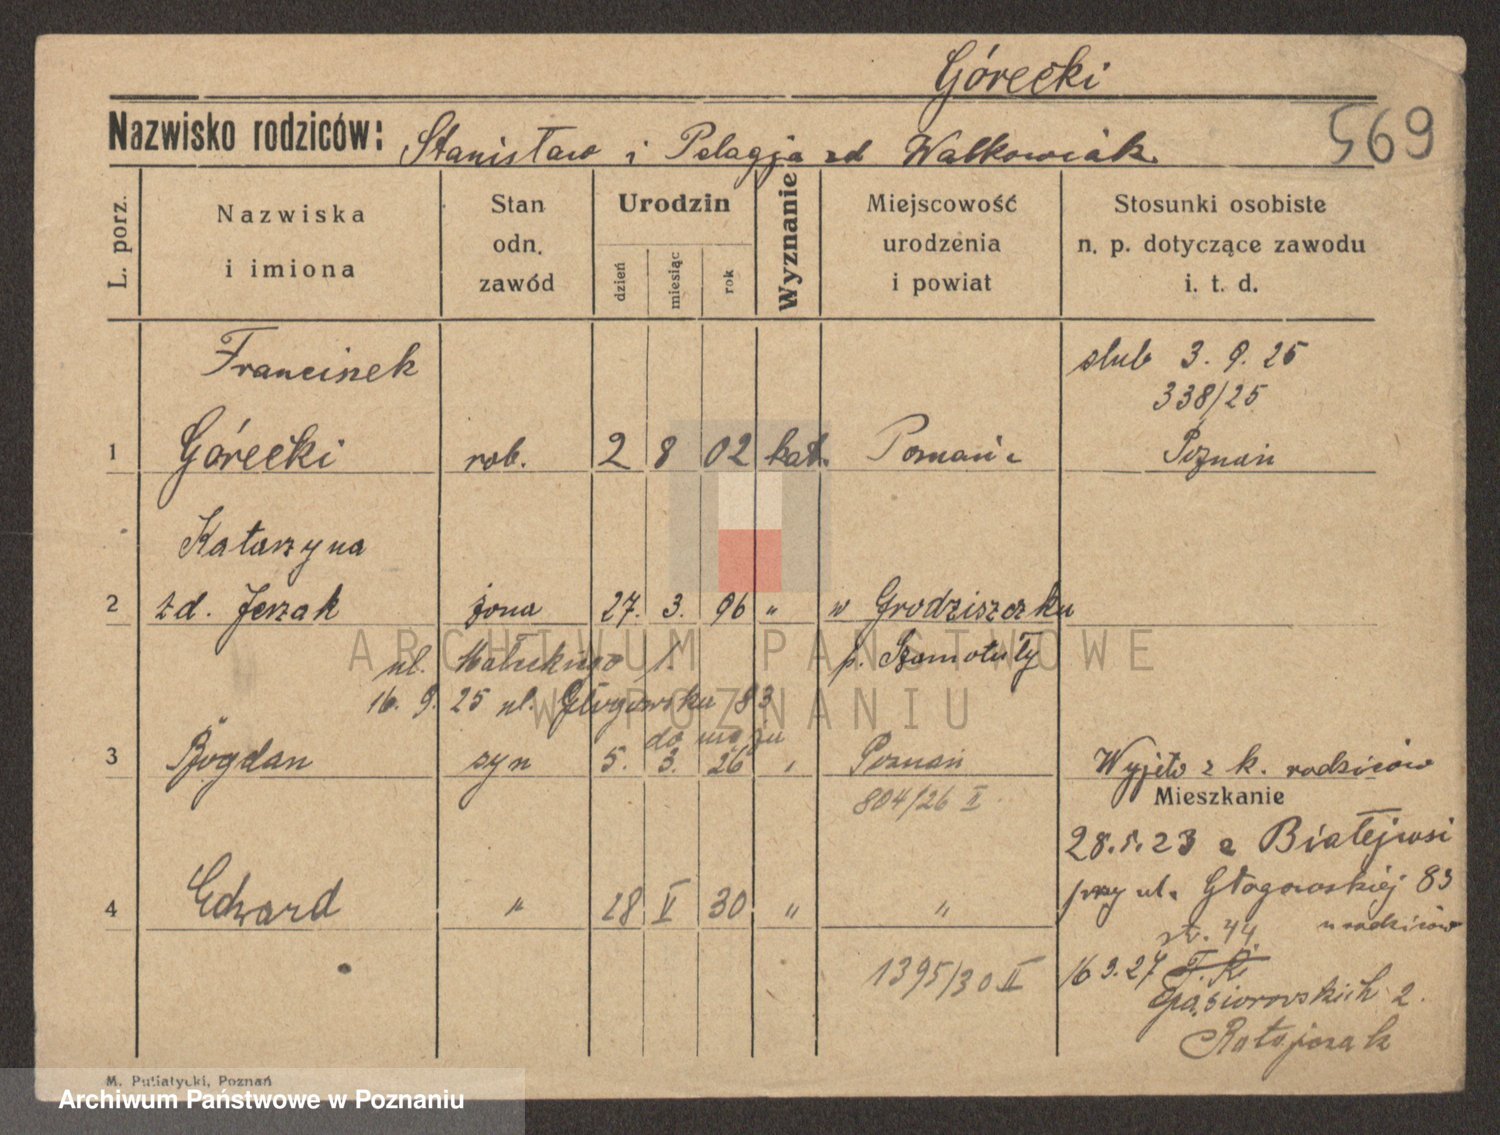 Górecki
569
Nazwisko rodziców: Stanisław i Pelagja zd Walkowiak
L. porz.
Nazwiska i imiona
Stan odn. zawód
Urodzin
dzień
miesiąc
rok
Wyznanie
Miejscowość urodzenia i powiat
Stosunki osobiste n. p. dotyczące zawodu i. t. d.
Franciszek
ślub 3. 9. 25
338/25
1 Górecki rob. 2 8 02 kat. Poznań
Poznań
Katarzyna
2 zd. Jerzak żona 27. 3. 96 " w Grodziszczku
ul. Małeckiego 1. p. Szamotuły
16. 9. 25 ul. Głogowska 83
do męża
3 Bogdan syn 5. 3. 26 " Poznań
Wyjęto z k. rodziców
804/26 II
Mieszkanie
28.5.23 z Białejwsi
przy ul. Głogowskiej 83
4 Edward " 28 V 30 " "
u rodziców
str. 44.
1395/30 II
16 3. 27 T. R.
Gąsiorowskich 2.
Ratajczak
M. Putiatycki, Poznań
ARCHIWUM PAŃSTWOWE
W POZNANIU
Archiwum Państwowe w Poznaniu